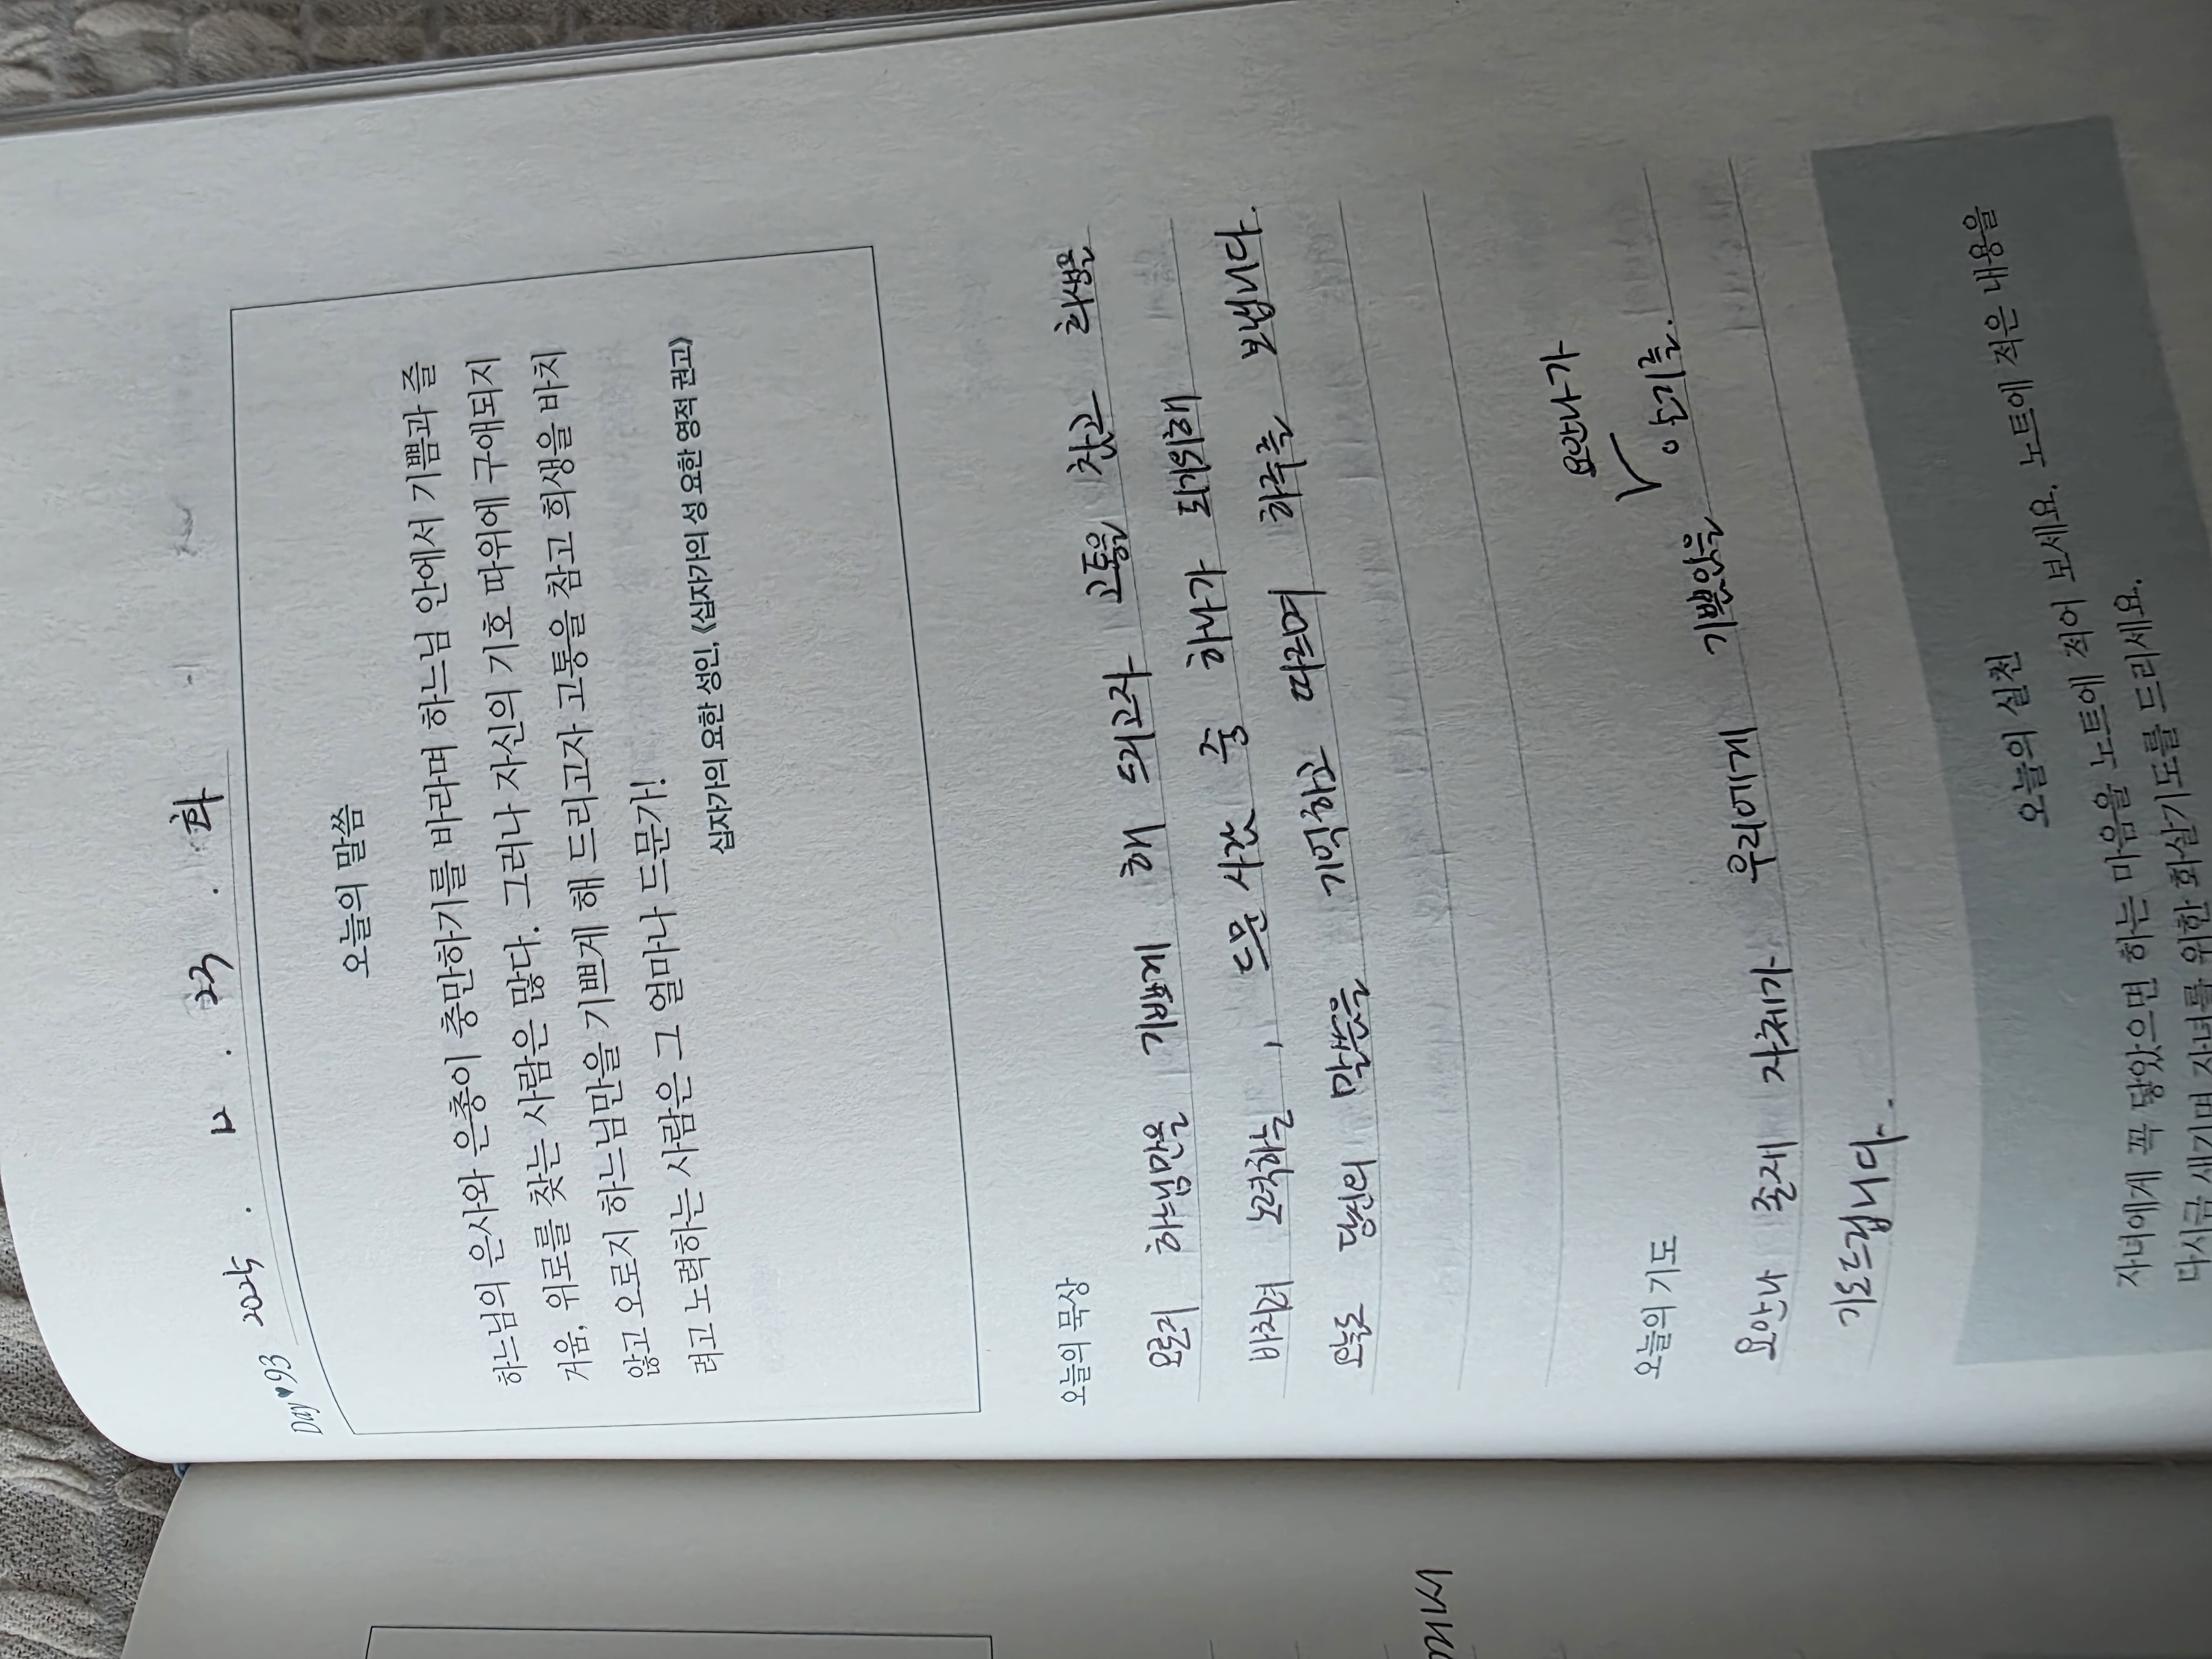 Day♥93 2025 . 12 . 23 . 화
오늘의 말씀
하느님의 은사와 은총이 충만하기를 바라며 하느님 안에서 기쁨과 즐
거움, 위로를 찾는 사람은 많다. 그러나 자신의 기호 따위에 구애되지
않고 오로지 하느님만을 기쁘게 해 드리고자 고통을 참고 희생을 바치
려고 노력하는 사람은 그 얼마나 드문가!
십자가의 요한 성인, 《십자가의 성 요한 영적 권고》
오늘의 묵상
오로지 하느님만을 기쁘게 해 드리고자 고통을 참고 희생을
바치려 노력하는, 드문 사람 중 하나가 되기위해
오늘도 당신의 말씀을 기억하고 따르며 하루를 보냅니다.
오늘의 기도
요안나가
요안나 존재 자체가 우리에게 기쁨있을 ✓ 알기를.
기도드립니다.
오늘의 실천
자녀에게 꼭 닿았으면 하는 마음을 노트에 적어 보세요. 노트에 적은 내용을
다시금 새기며 자녀를 위한 화살기도를 드리세요.
께서